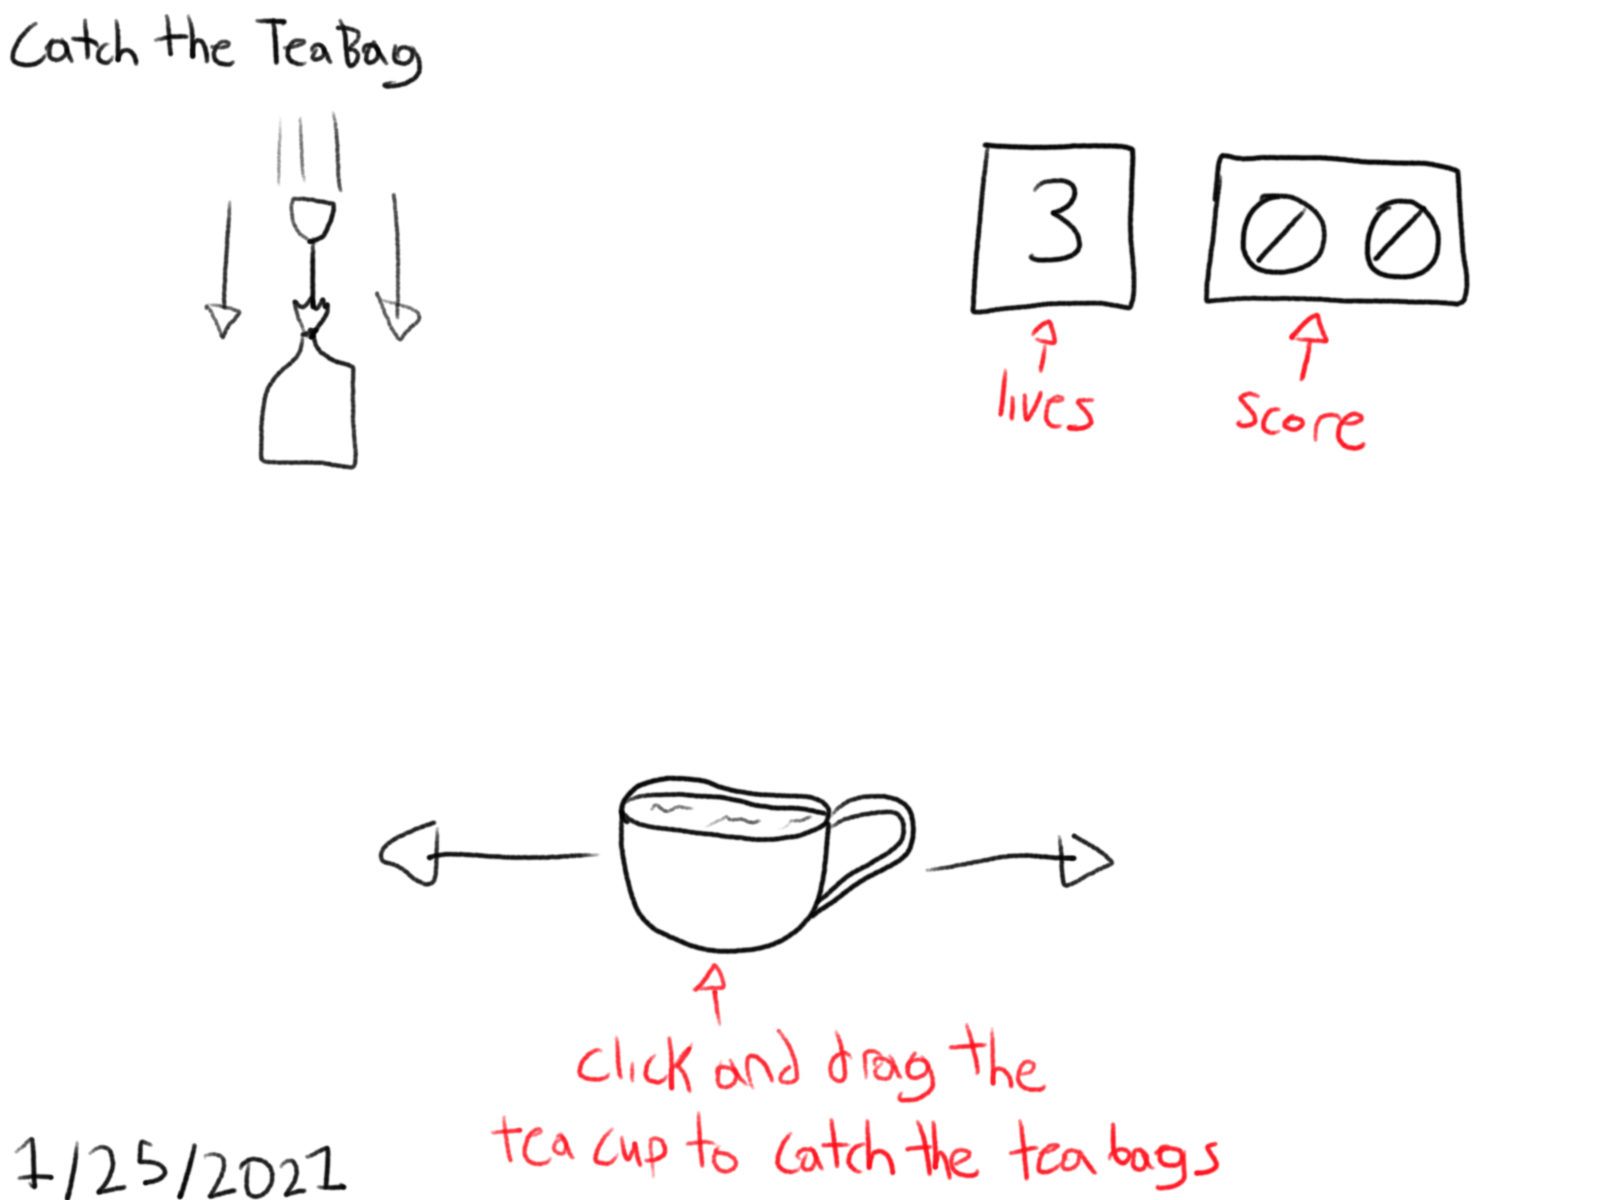 Catch the TeaBag
3
00
lives
score
click and drag the
tea cup to catch the tea bags
1/25/2021